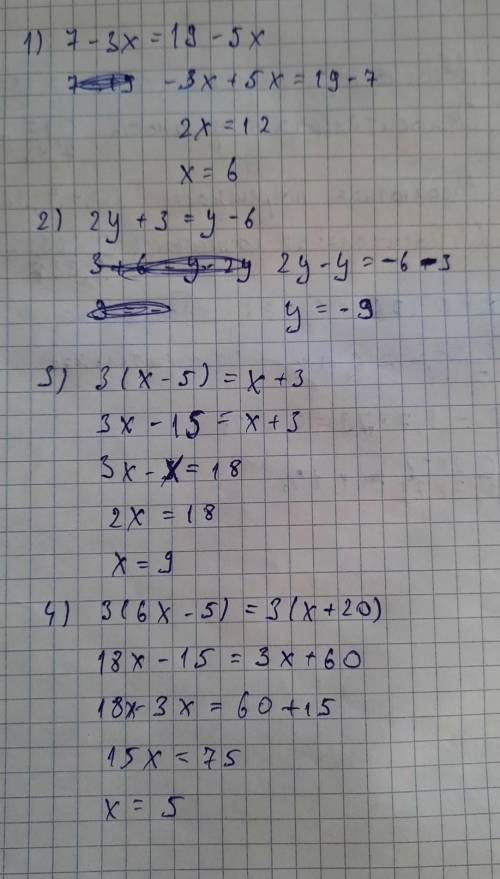 1) 7 - 3x = 19 - 5x
-3x + 5x = 19 - 7
2x = 12
x = 6
2) 2y + 3 = y - 6
2y - y = -6 - 3
y = -9
3) 3(x - 5) = x + 3
3x - 15 = x + 3
3x - x = 18
2x = 18
x = 9
4) 3(6x - 5) = 3(x + 20)
18x - 15 = 3x + 60
18x - 3x = 60 + 15
15x = 75
x = 5